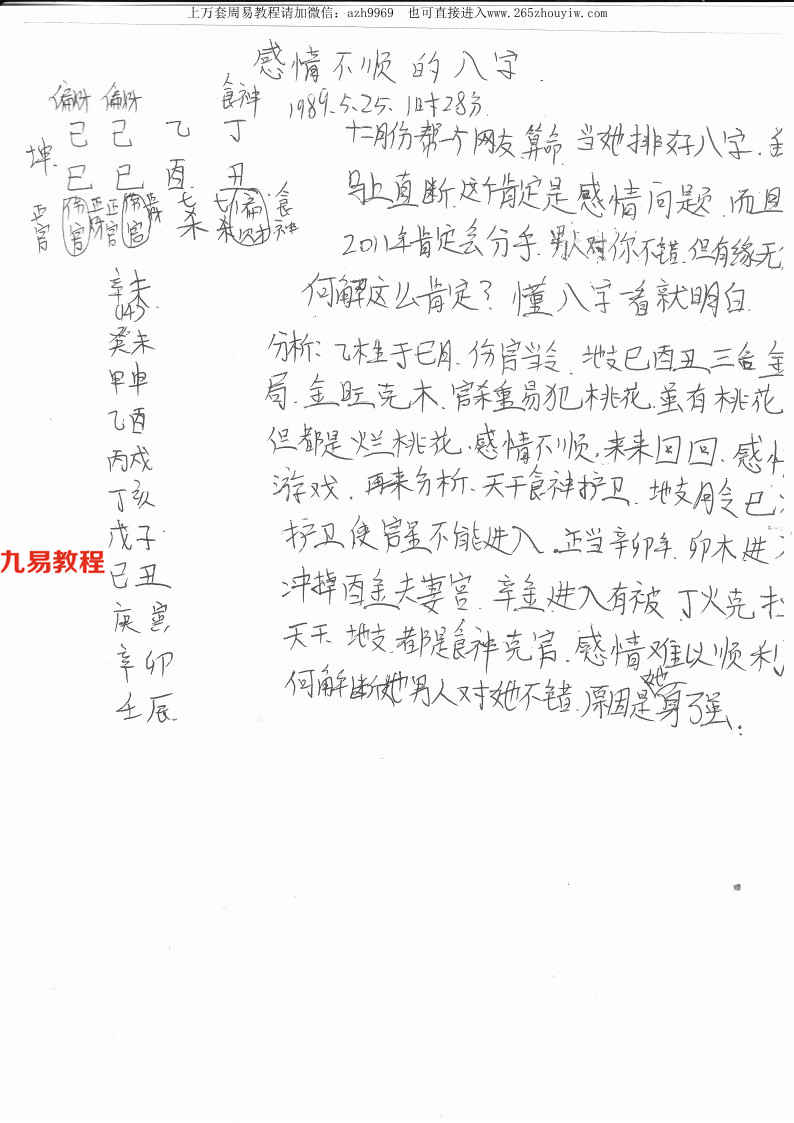 上万套周易教程请加微信：azh9969 也可直接进入www.265zhouyiw.com
感情不顺的八字.
偏财 偏财 食神
1989.5.25. 1时28分
己 己 乙 丁
坤.
巳 巳 酉 丑
正官 伤官 正财 正官 伤官 正财 七杀 七杀 偏财 食神
十二月份帮一个网友算命.当她排好八字.
马上直断.这个肯定是感情问题.而且
2011年肯定会分手.男人对你不错.但有缘无
何解这么肯定？懂八字一看就明白.
分析：乙木生于巳月.伤官当令.地支巳酉丑三合金
局.金旺克木.官杀重易犯桃花.虽有桃花
但都是烂桃花.感情不顺.来来回回.感
游戏.再来分析.天干食神护卫.地支月令巳
护卫使官星不能进入.正当辛卯年.卯木进
冲掉酉金夫妻宫.辛金进入有被丁火克
天干.地支.都是食神克官.感情难以顺利
何解断她男人对她不错.原因是她身弱：
辛未
癸未
甲申
乙酉
丙戌
丁亥
戊子
己丑
庚寅
辛卯
壬辰.
九易教程